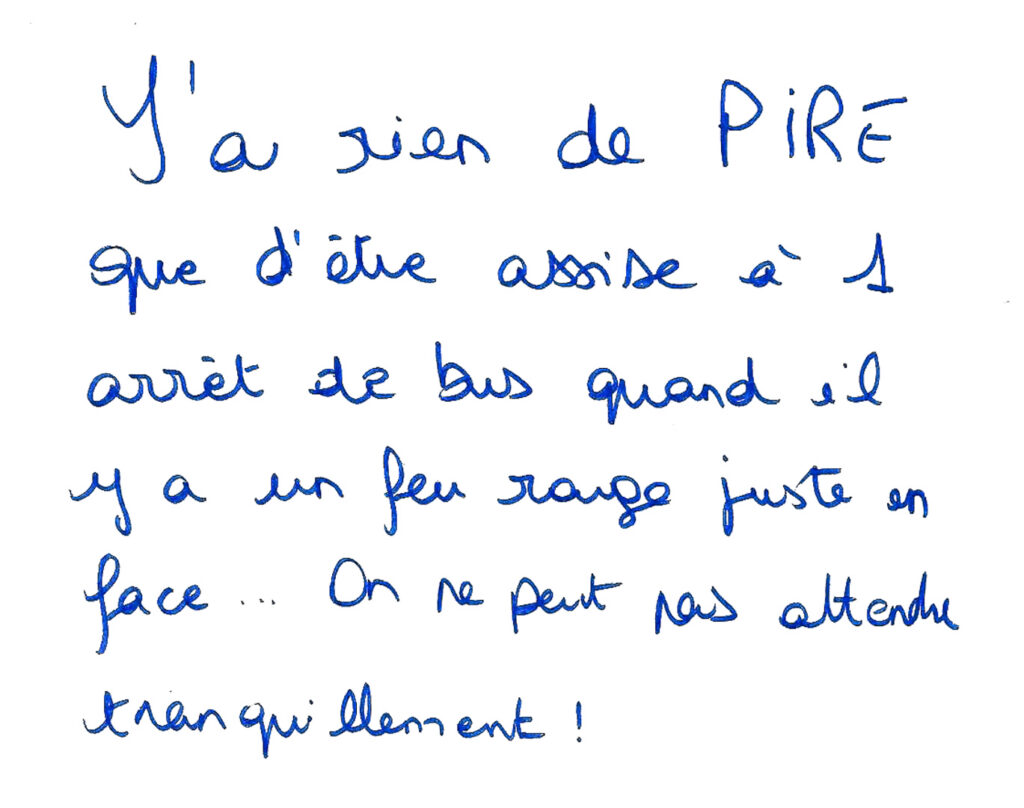 Y'a rien de PiRE
que d'être assise à 1
arrêt de bus quand il
y a un feu rouge juste en
face... On ne peut pas attendre
tranquillement !